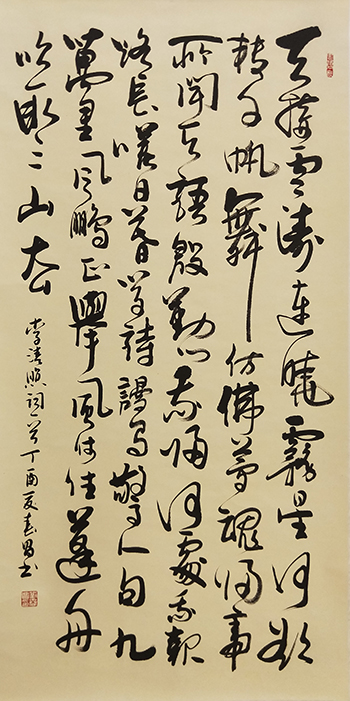 天接雲濤連曉霧星河欲
轉千帆舞仿佛夢魂歸帝
所聞天語殷勤問我歸何處我報
路長嗟日暮學詩謾有驚人句九
萬里風鵬正舉風休住蓬舟
吹取三山去
李清照詞一首丁酉夏